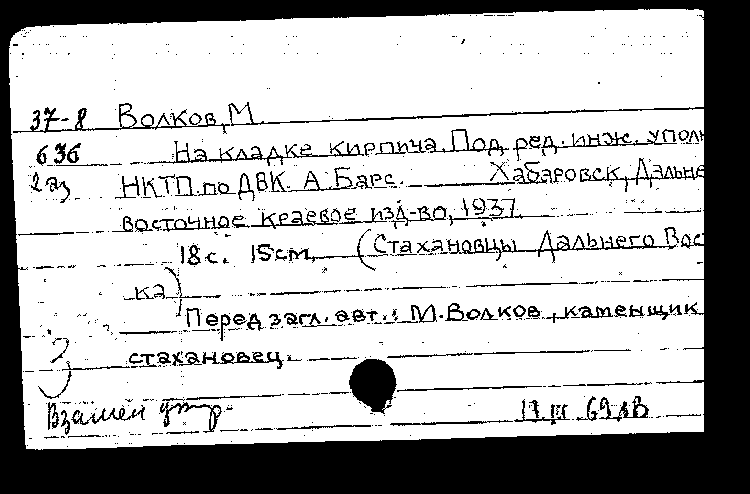 37-8 Волков, М.
636 На кладке кирпича. Под ред. инж. уполн
2аз НКТП по ДВК А. Барс. Хабаровск, Дальне
восточное краевое изд-во, 1937.
18 с. 15 см. (Стахановцы Дальнего Вос
ка)
Перед загл. авт.: М. Волков, каменщик
стахановец.
Взамен утр. 17.III.69